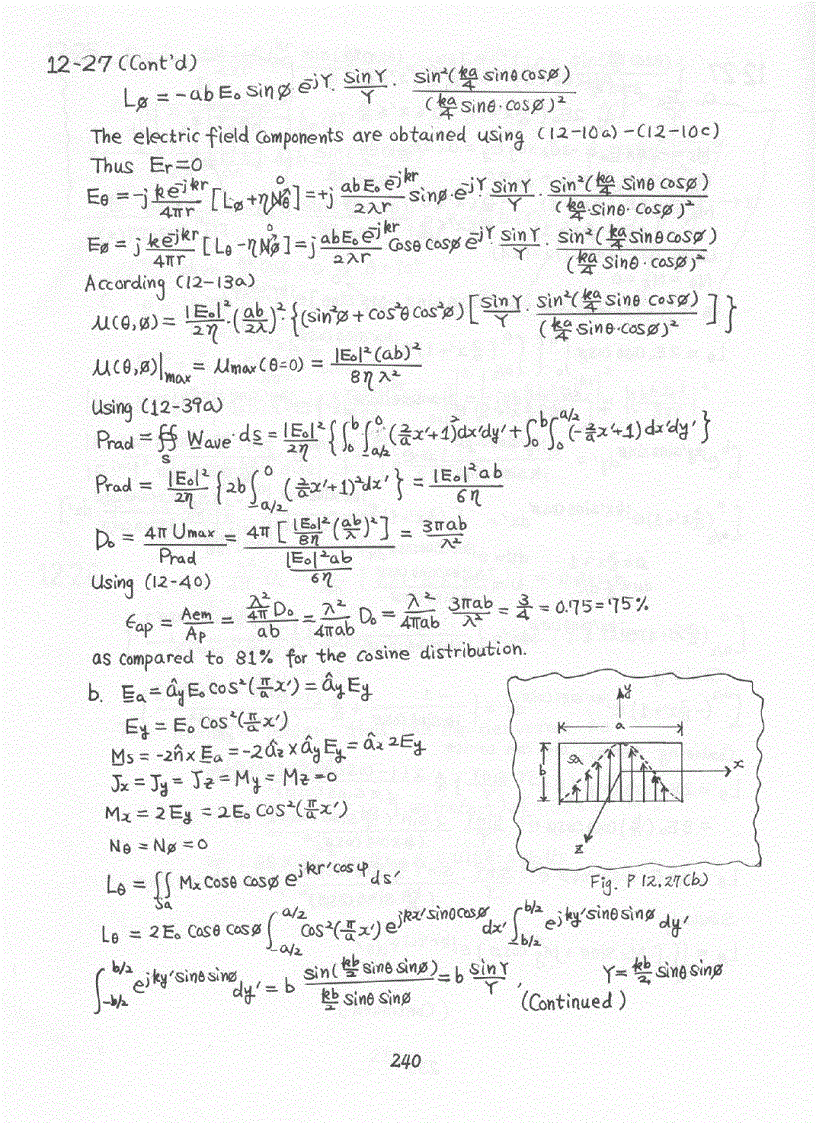 12-27 (Cont'd)
Lø = -ab E₀ sin ø e^{-jY} · sin Y / Y · sin²(ka/4 sinθ cosø) / (ka/4 sinθ · cosø)²
The electric field components are obtained using (12-10a)-(12-10c)
Thus Er = 0
Eθ = -j ke^{-jkr} / 4πr [Lø + ηNθ→0] = +j abE₀e^{-jkr} / 2λr sinø · e^{-jY} sin Y / Y · sin²(ka/4 sinθ cosø) / (ka/4 sinθ · cosø)²
Eø = j ke^{-jkr} / 4πr [Lθ - ηNø→0] = j abE₀e^{-jkr} / 2λr cosθ cosø e^{-jY} sin Y / Y · sin²(ka/4 sinθ cosø) / (ka/4 sinθ · cosø)²
According (12-13a)
U(θ,ø) = |E₀|² / 2η · (ab/2λ)² · {(sin²ø + cos²θ cos²ø) [sin Y / Y · sin²(ka/4 sinθ cosø) / (ka/4 sinθ·cosø)²]}
U(θ,ø)|max = Umax(θ=0) = |E₀|²(ab)² / 8ηλ²
Using (12-39a)
Prad = ∯_S Wave · ds = |E₀|² / 2η {∫₀^b ∫_{-a/2}^0 (2/a x'+1)² dx'dy' + ∫₀^b ∫₀^{a/2} (-2/a x'+1) dx'dy'}
Prad = |E₀|² / 2η {2b ∫_{-a/2}^0 (2/a x'+1)² dx'} = |E₀|² ab / 6η
D₀ = 4π Umax / Prad = 4π [|E₀|² / 8η (ab/λ)²] / (|E₀|² ab / 6η) = 3πab / λ²
Using (12-40)
εap = Aem / Ap = (λ²/4π D₀) / ab = λ² / 4πab D₀ = λ² / 4πab 3πab / λ² = 3/4 = 0.75 = 75%
as compared to 81% for the cosine distribution.
b. Ea = ây E₀ cos²(π/a x') = ây Ey
Ey = E₀ cos²(π/a x')
Ms = -2n̂ x Ea = -2âz x ây Ey = âx 2Ey
Jx = Jy = Jz = My = Mz = 0
Mx = 2Ey = 2E₀ cos²(π/a x')
Nθ = Nø = 0
Lθ = ∬_{Sa} Mx cosθ cosø e^{jkr' cosψ} ds'
Lθ = 2E₀ cosθ cosø ∫_{-a/2}^{a/2} cos²(π/a x') e^{jkx' sinθ cosø} dx' ∫_{-b/2}^{b/2} e^{jky' sinθ sinø} dy'
∫_{-b/2}^{b/2} e^{jky' sinθ sinø} dy' = b sin(kb/2 sinθ sinø) / (kb/2 sinθ sinø) = b sin Y / Y , Y = kb/2 sinθ sinø
(Continued)
y
a
Sa
b
x
z
Fig. P 12.27(b)
240